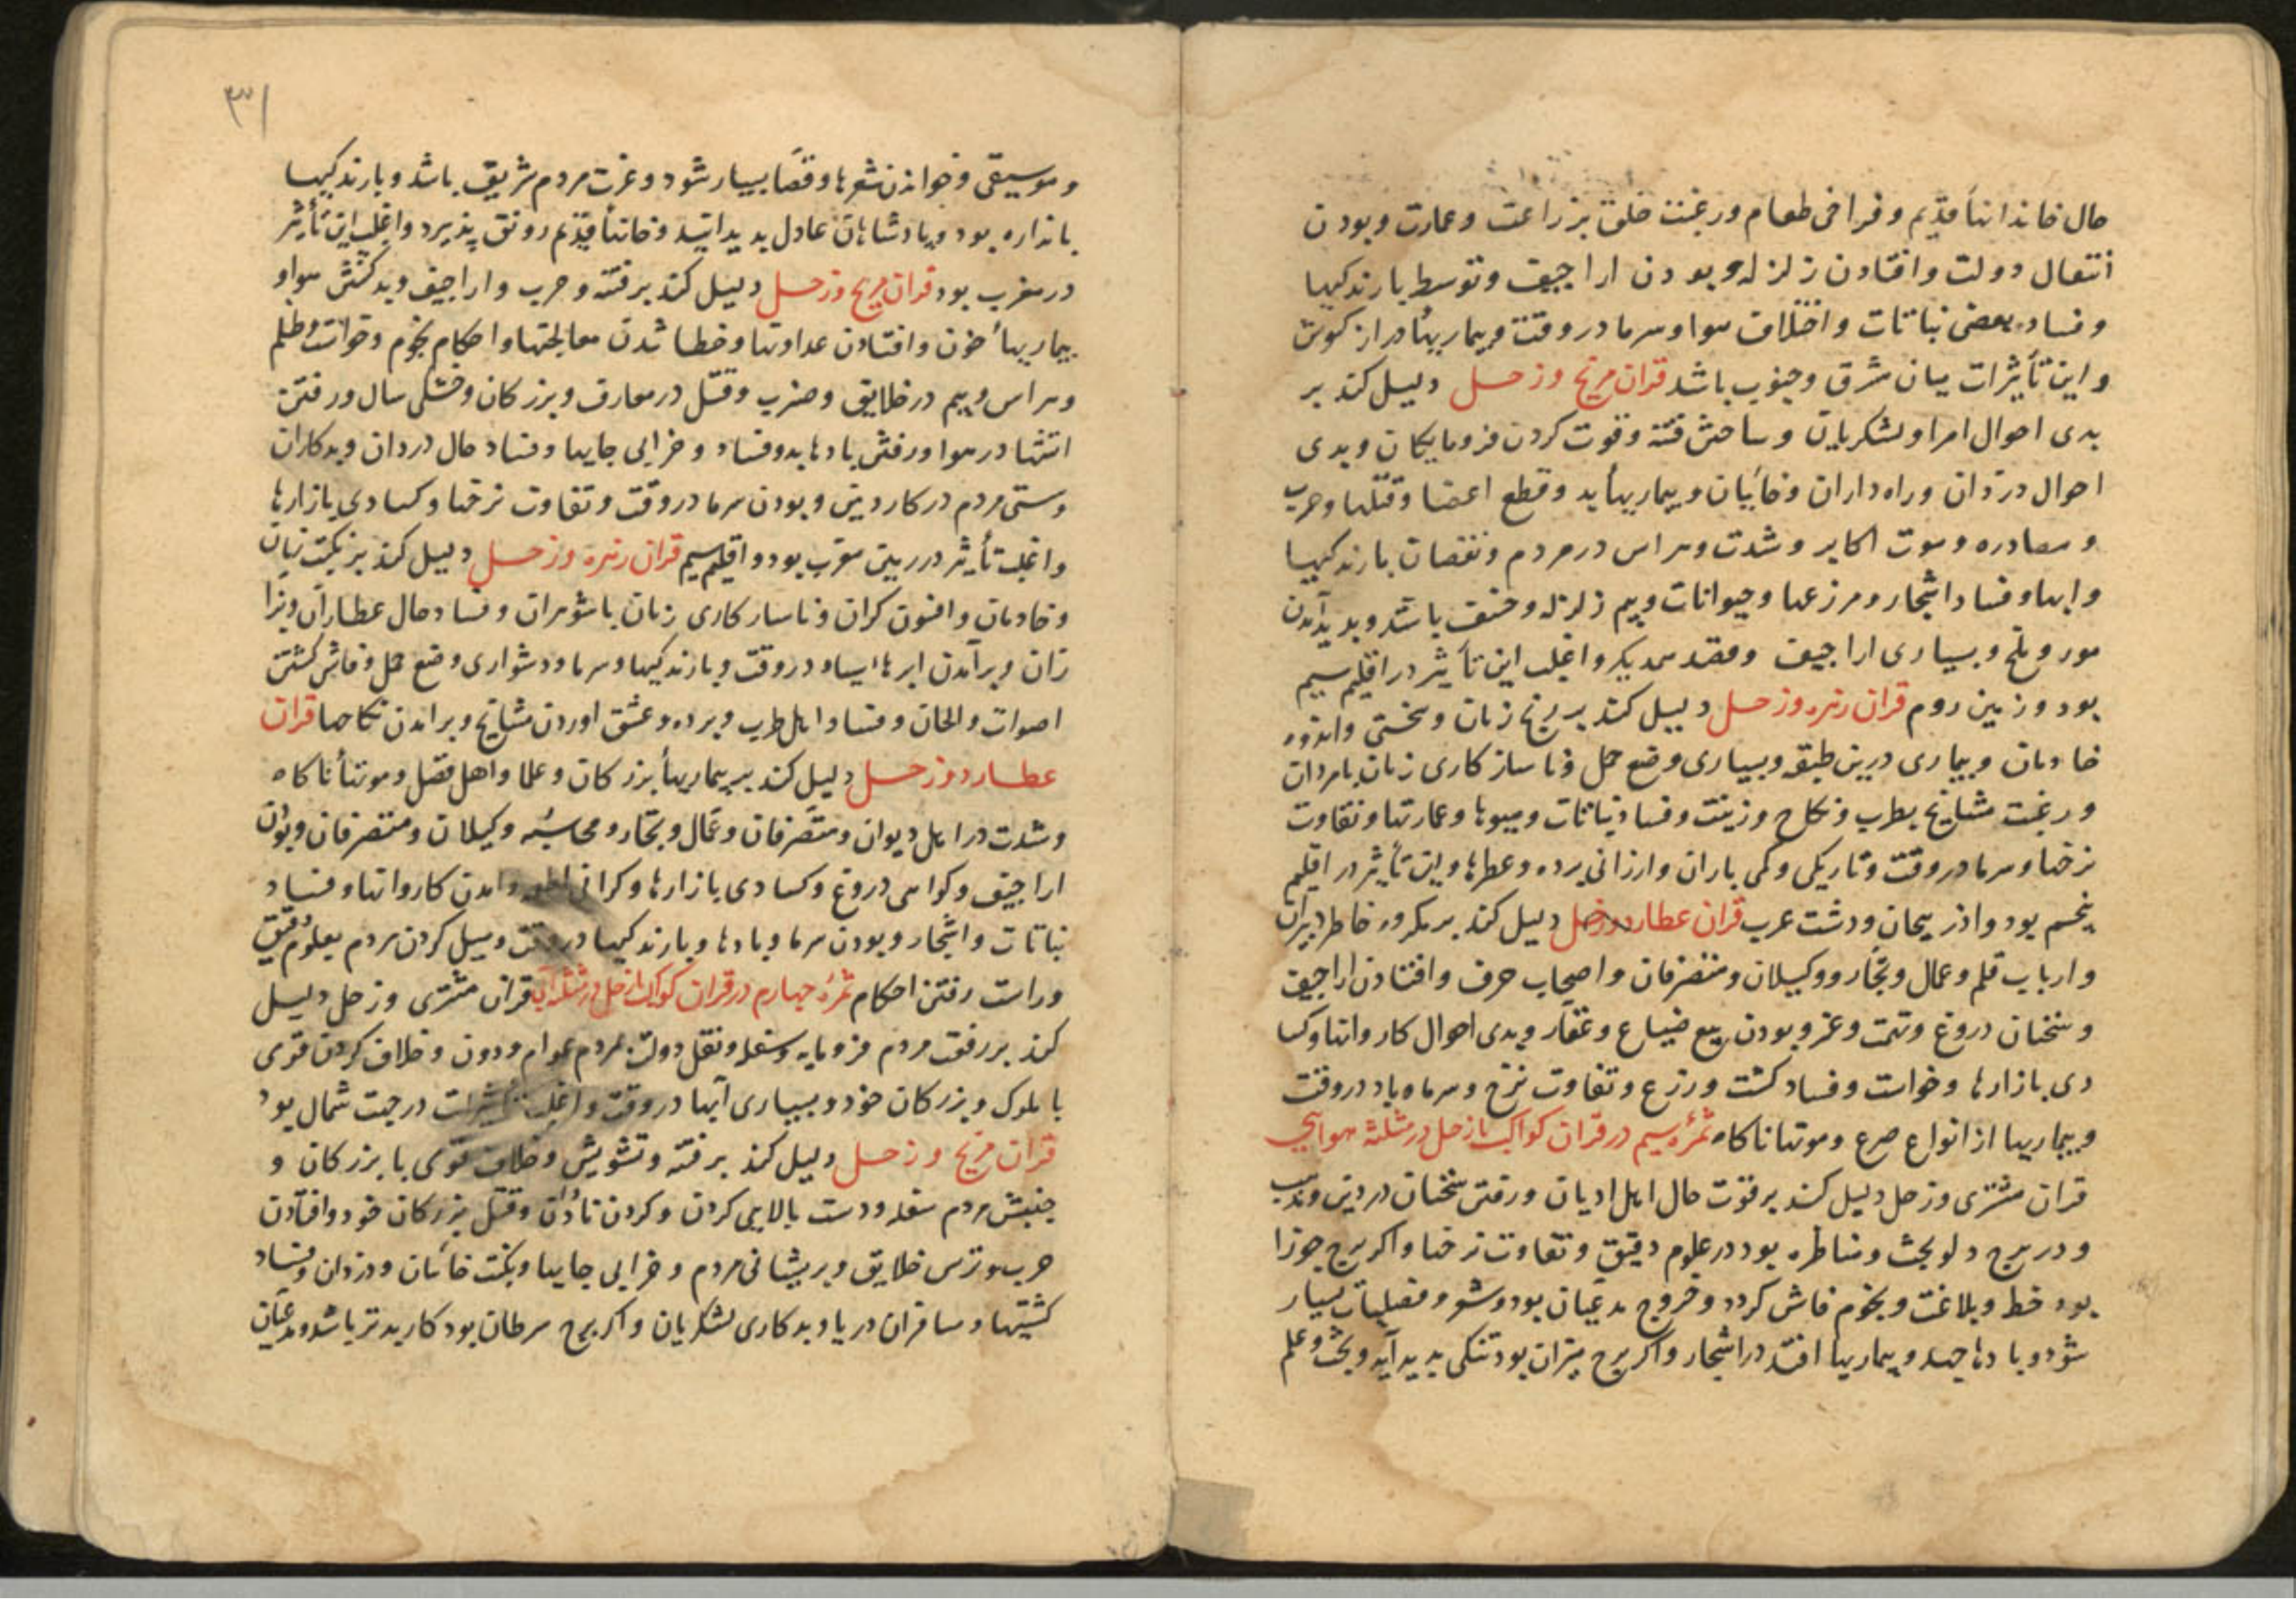 حال خاندانهاء قدیم و فراخی طعام و رغبت خلق بزراعت و عمارت و بودن
انتقال دولت و افتادن زلزله و بودن اراجیف و توسط بارندکیها
و فساد بعضی نباتات و اختلاف هوا و سرما در وقت و بیماریهاء دراز کوش
و این تأثیرات میان مشرق و جنوب باشد قران مریخ و زحل دلیل کند بر
بدی احوال امرا و لشکریان و ساختن فتنه و قوت کردن فرومایکان و بدی
احوال دزدان و راه داران و خاینان و بیماریهاء بد و قطع اعضا و قتلها و حرب
و مصادره و موت اکابر و شدت و هراس در مردم و نقصان بارندکیها
و ابها و فساد اشجار و مزرعها و حیوانات و بیم زلزله و خسف باشد و بدید آمدن
مور و ملخ و بسیاری اراجیف و قصد یکدیکر و اغلب این تأثیر در اقلیم سیم
بود و زمین روم قران زهره و زحل دلیل کند بر رنج زنان و سختی و اندوه
خادمان و بیماری درین طبقه و بسیاری وضع حمل و ناسازکاری زنان با مردان
و رغبت مشایخ بطرب و نکاح و زینت و فساد نباتات و میوها و عمارتها و تفاوت
نرخها و سرما در وقت و تاریکی و کمی باران و ارزانی برده و عطرها و این تأثیر در اقلیم
پنجم بود و اذربیجان و دشت عرب قران عطارد و زحل دلیل کند بر مکروه خاطر دبیران
و ارباب قلم و عمال و تجار و وکیلان و متصرفان و اصحاب حرف و افتادن اراجیف
و سخنان دروغ و تهمت و غمز و بودن بیع ضیاع و عقار و بدی احوال کاروانها و کسا
دی بازارها و خواست و فساد کشت و زرع و تفاوت نرخ و سرما و باد در وقت
و بیماریها از انواع صرع و موتها ناکاه ثمرهٔ سیم در قران کواکب با زحل در مثلثه هوایی
قران مشتری و زحل دلیل کند بر قوت حال اهل ادیان و رفتن سخنان در دین و مذهب
و در برج دلو بحث و مناظره بود در علوم دقیق و تفاوت نرخها و اکر برج جوزا
بود خط و بلاغت و نجوم فاش کردد و خروج مدعیان بود و شعر و فضلیات بسیار
شود و بادها جهد و بیماریها افتد در اشجار و اکر برج میزان بود تنکی بدید آید و بحث و علم
۳۱
و موسیقی و خواندن شعرها و قصها بسیار شود و عزت مردم شریف باشد و بارندکیها
باندازه بود و پادشاهان عادل بدید ایند و خانهاء قدیم رونق پذیرد و اغلب این تأثیر
در مغرب بود قران مریخ و زحل دلیل کند بر فتنه و حرب و اراجیف و بد کشتن هوا و
بیماریهاء خون و افتادن عداوتها و خطا شدن معالجتها و احکام نجوم و خواست و ظلم
و هراس و بیم در خلایق و ضرب و قتل در معارف و بزرکان و خشکی سال و رفتن
اتشها در هوا و رفتن بادهاء بد و فساد و خرابی جایها و فساد حال دزدان و بدکاران
و سستی مردم در کار دین و بودن سرما در وقت و تفاوت نرخها و کسادی بازارها
و اغلب تأثیر در زمین مغرب بود و اقلیم سیم قران زهره و زحل دلیل کند بر نکبت زنان
و خادمان و افسون کران و ناسازکاری زنان با شوهران و فساد حال عطاران و بزا
زان و برآمدن ابرهاء سیاه در وقت و بارندکیها و سرما و دشواری وضع حمل و فاش کشتن
اصوات و الحان و فساد اهل طرب و برده و عشق اوردن مشایخ و براندن نکاحها قران
عطارد و زحل دلیل کند بر بیماریهاء بزرکان و علما و اهل فضل و موتهاء ناکاه
و شدت در اهل دیوان و متصرفان و عمال و تجار و محاسبه وکیلان و متصرفان و بودن
اراجیف و کواهی دروغ و کسادی بازارها و کرانی و امدن کاروانها و فساد
نباتات و اشجار و بودن سرما و بادها و بارندکیها در وقت و میل کردن مردم بعلوم دقیق
و راست رفتن احکام ثمرهٔ چهارم در قران کواکب با زحل در مثلثه آبی قران مشتری و زحل دلیل
کند بر رفعت مردم فرومایه و سفله و نقل دولت بمردم عوام و دون و خلاف کردن قومی
با ملوک و بزرکان خود و بسیاری آبها در وقت و اغلب تأثیرات در جهت شمال بود
قران مریخ و زحل دلیل کند بر فتنه و تشویش و خلاف قومی با بزرکان و
جنبش مردم سفله و دست بالایی کردن و کردن ندادن و قتل بزرکان خود و افتادن
حرب و ترس خلایق و پریشانی مردم و خرابی جایها و نکبت خاینان و دزدان و فساد
کشتیها و مسافران دریا و بدکاری لشکریان و اکر برج سرطان بود کار بدتر باشد و مدعیان